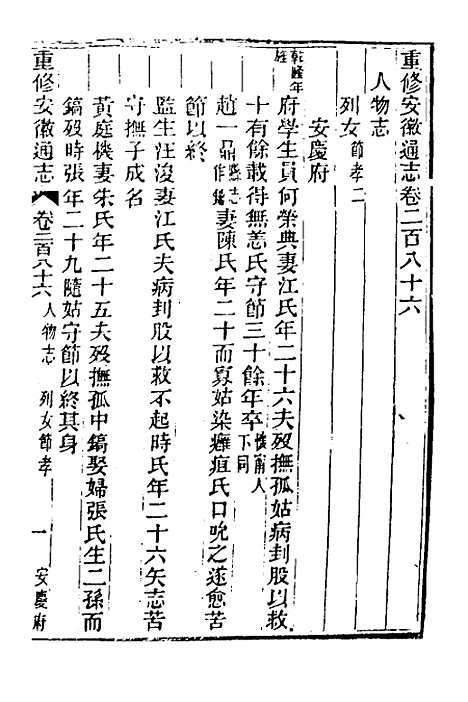 重修安徽通志卷二百八十六
人物志
列女節孝二
安慶府
乾隆年旌
府學生員何榮典妻江氏年二十六夫歿撫孤姑病刲股以救
十有餘載得無恙氏守節三十餘年卒懷甯人下同
趙一鼎縣志作鼐妻陳氏年二十而寡姑染癰疽氏口吮之遂愈苦
節以終
監生汪沒妻江氏夫病刲股以救不起時氏年二十六矢志苦
守撫子成名
黃庭機妻朱氏年二十五夫歿撫孤中鎬娶婦張氏生二孫而
鎬歿時張年二十九隨姑守節以終其身
重修安徽通志 卷二百八十六 人物志 列女節孝 一 安慶府